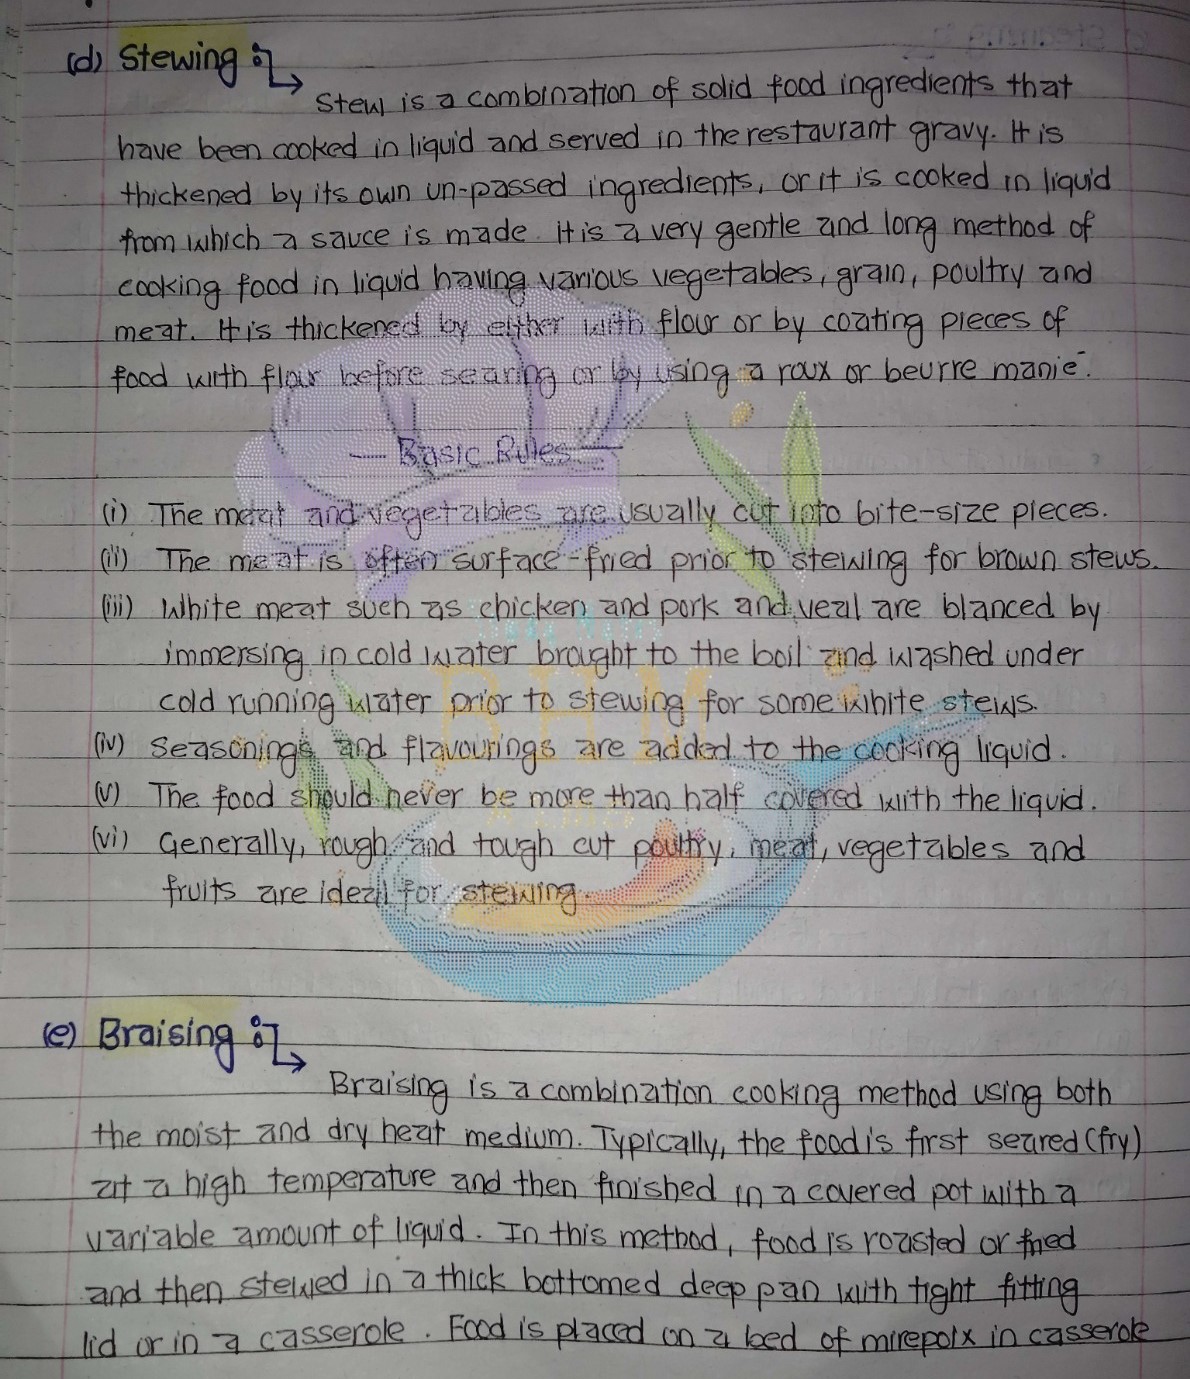 (d) Stewing :
Stew is a combination of solid food ingredients that
have been cooked in liquid and served in the restaurant gravy. It is
thickened by its own un-passed ingredients, or it is cooked in liquid
from which a sauce is made. It is a very gentle and long method of
cooking food in liquid having various vegetables, grain, poultry and
meat. It is thickened by either with flour or by coating pieces of
food with flour before searing or by using a roux or beurre manie.
— Basic Rules —
(i) The meat and vegetables are usually cut into bite-size pieces.
(ii) The meat is often surface-fried prior to stewing for brown stews.
(iii) White meat such as chicken and pork and veal are blanced by
immersing in cold water brought to the boil and washed under
cold running water prior to stewing for some white stews.
(iv) Seasonings and flavourings are added to the cooking liquid.
(v) The food should never be more than half covered with the liquid.
(vi) Generally, rough and tough cut poultry, meat, vegetables and
fruits are ideal for stewing.
BHM
(e) Braising :
Braising is a combination cooking method using both
the moist and dry heat medium. Typically, the food is first seared (fry)
at a high temperature and then finished in a covered pot with a
variable amount of liquid. In this method, food is roasted or fried
and then stewed in a thick bottomed deep pan with tight fitting
lid or in a casserole. Food is placed on a bed of mirepoix in casserole